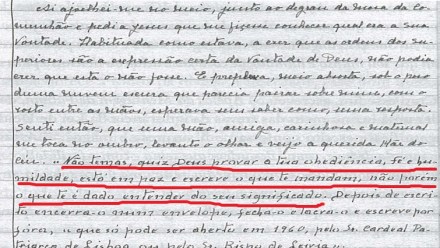 ali ajoelhei-me no meio, junto ao degrau da mesa da Co-
munhão e pedi a Jesus que me fizesse conhecer qual era a Sua
Vontade. Habituada como estava, a crer que as ordens dos Su-
periores são a expressão certa da Vontade de Deus, não podia
crer que esta o não fosse. E perplexa, meio absorta, sob o peso
duma nuvem escura que parecia pairar sobre mim, com o
rosto entre as mãos, esperava sem saber como, uma resposta.
Senti então, que uma mão, amiga, carinhosa e maternal
me toca no ombro, levanto o olhar e vejo a querida Mãe do
Céu. "Não temas, quiz Deus provar a tua obediência, fé e hu-
mildade, está em paz e escreve o que te mandam, não porém
o que te é dado entender do seu significado. Depois de escri-
to encerra-o num envelope, fecha-o e lacra-o e escreve por
fóra, que só pode ser aberto em 1960, pelo Sr. Cardeal Pa-
triarca de Lisboa ou pelo Sr. Bispo de Leiria".